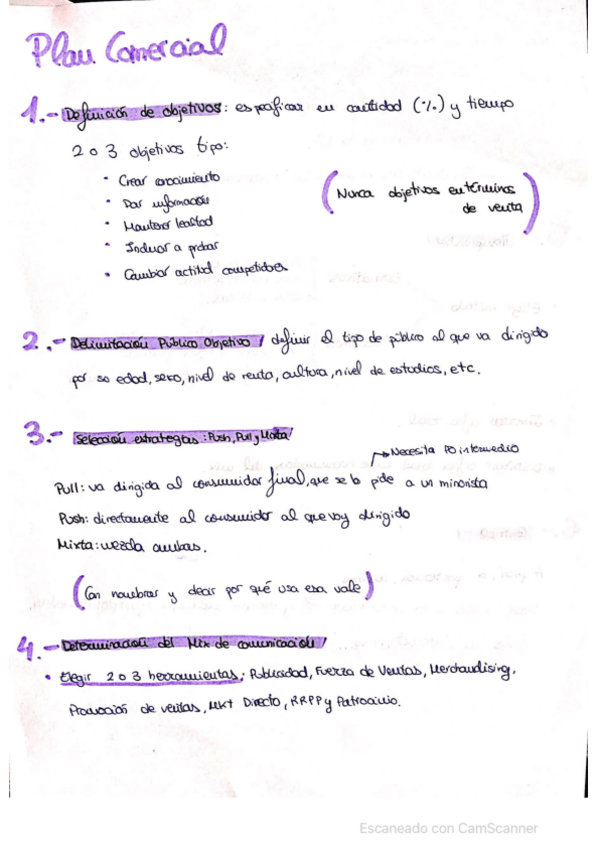 Plan Comercial
1.- Definición de objetivos: especificar en cantidad (%) y tiempo
2 o 3 objetivos tipo:
• Crear conocimiento
• Dar información
• Mantener lealtad
• Inducir a probar
• Cambiar actitud competidores
(Nunca objetivos en términos
de venta)
2.- Delimitación Público Objetivo / definir el tipo de público al que va dirigido
por su edad, sexo, nivel de renta, cultura, nivel de estudios, etc.
3.- Selección estrategias: Push, Pull y Mixta /
Necesita PO intermedio
Pull: va dirigida al consumidor final, que se lo pide a un minorista
Push: directamente al consumidor al que voy dirigido
Mixta: mezcla ambas.
(Con nombrar y decir por qué usa esa vale)
4.- Determinación del Mix de comunicación /
• Elegir 2 o 3 herramientas: Publicidad, Fuerza de Ventas, Merchandising,
Promoción de ventas, Mkt Directo, RRPP y Patrocinio.
Escaneado con CamScanner